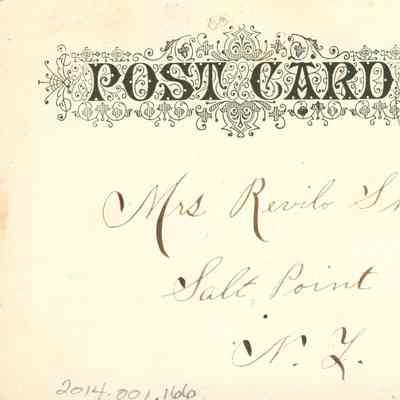 POST CARD
Mrs Revilo
Salt Point
N. Y.
2014.001.166